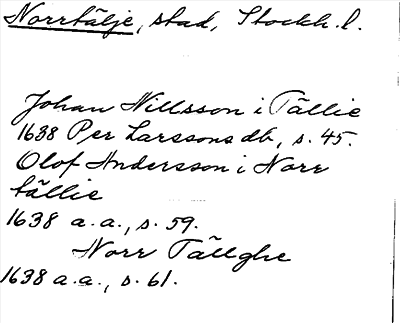 Norrtälje, stad, Stockh. l.
Johan Nillsson i Tällie
1638 Per Larssons db, s. 45.
Olof Andersson i Norr
tällie
1638 a.a., s. 59.
Norr Tällghe
1638 a.a., s. 61.